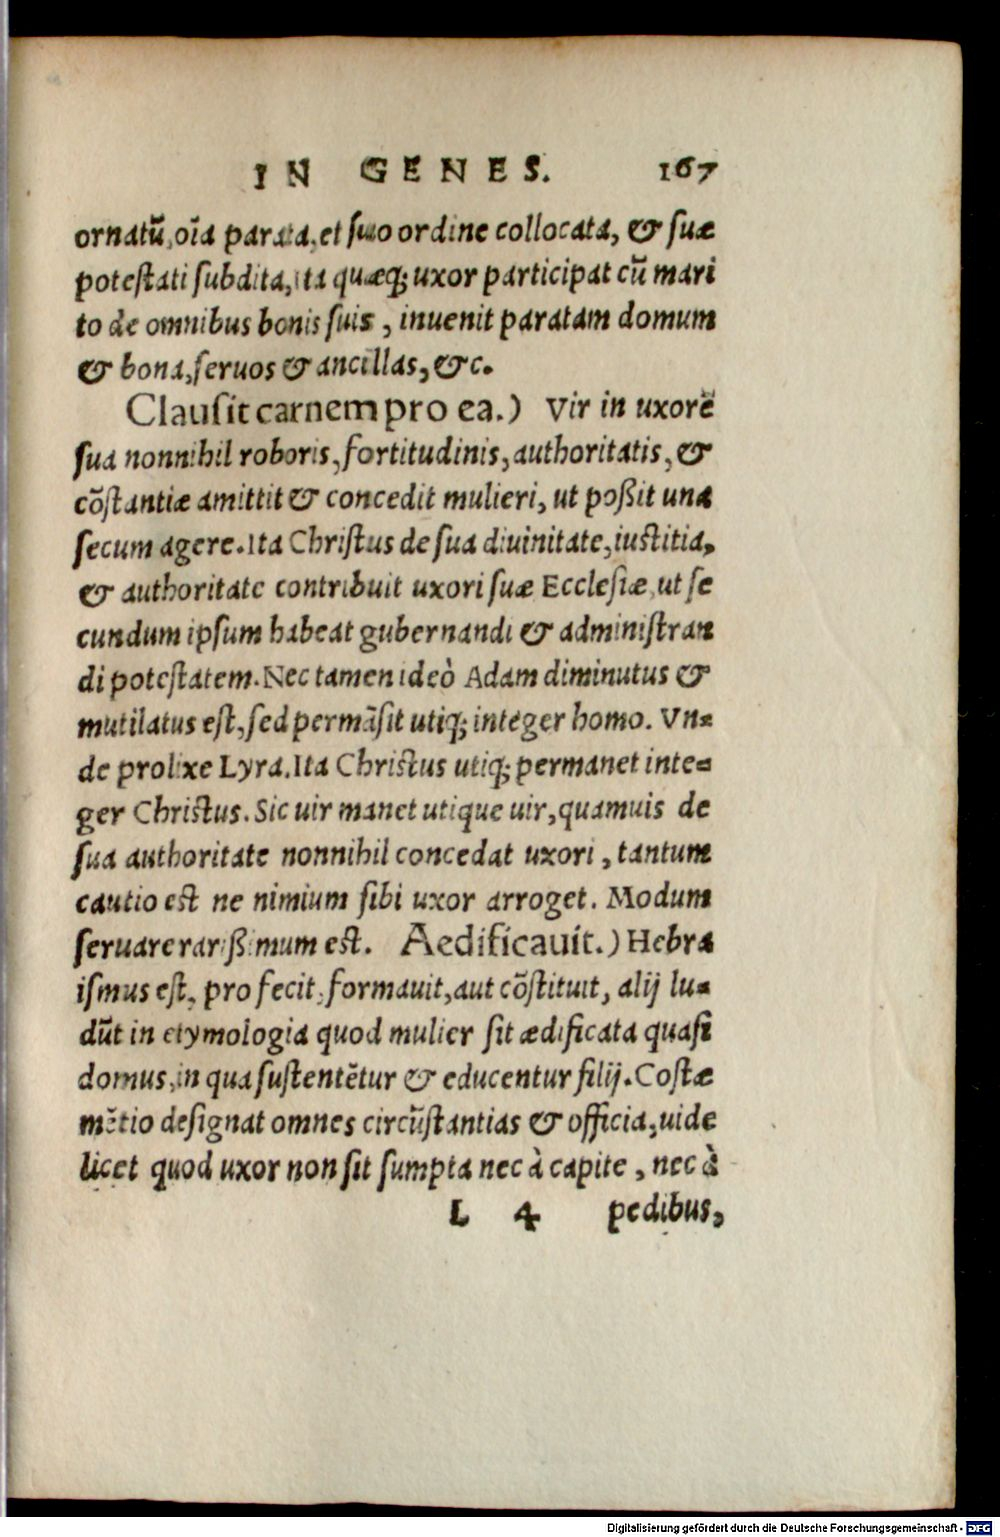 IN GENES. 167
ornatũ, oĩa parata, et suo ordine collocata, & suæ
potestati subdita, ita quæq; uxor participat cũ mari
to de omnibus bonis suis, inuenit paratam domum
& bona, seruos & ancillas, &c.
Clausit carnem pro ea.) Vir in uxorẽ
sua nonnihil roboris, fortitudinis, authoritatis, &
cõstantiæ amittit & concedit mulieri, ut poßit una
secum agere. Ita Christus de sua diuinitate, iustitia,
& authoritate contribuit uxori suæ Ecclesiæ, ut se
cundum ipsum habeat gubernandi & administran
di potestatem. Nec tamen ideò Adam diminutus &
mutilatus est, sed permãsit utiq; integer homo. Vn-
de prolixe Lyra. Ita Christus utiq; permanet inte-
ger Christus. Sic uir manet utique uir, quamuis de
sua authoritate nonnihil concedat uxori, tantum
cautio est ne nimium sibi uxor arroget. Modum
seruare rarißimum est. Aedificauit.) Hebra
ismus est, pro fecit, formauit, aut cõstituit, alij lu-
dũt in etymologia quod mulier sit ædificata quasi
domus, in qua sustentẽtur & educentur filij. Costæ
mẽtio designat omnes circũstantias & officia, uide
licet quod uxor non sit sumpta nec à capite, nec à
L 4 pedibus,
Digitalisierung gefördert durch die Deutsche Forschungsgemeinschaft - DFG